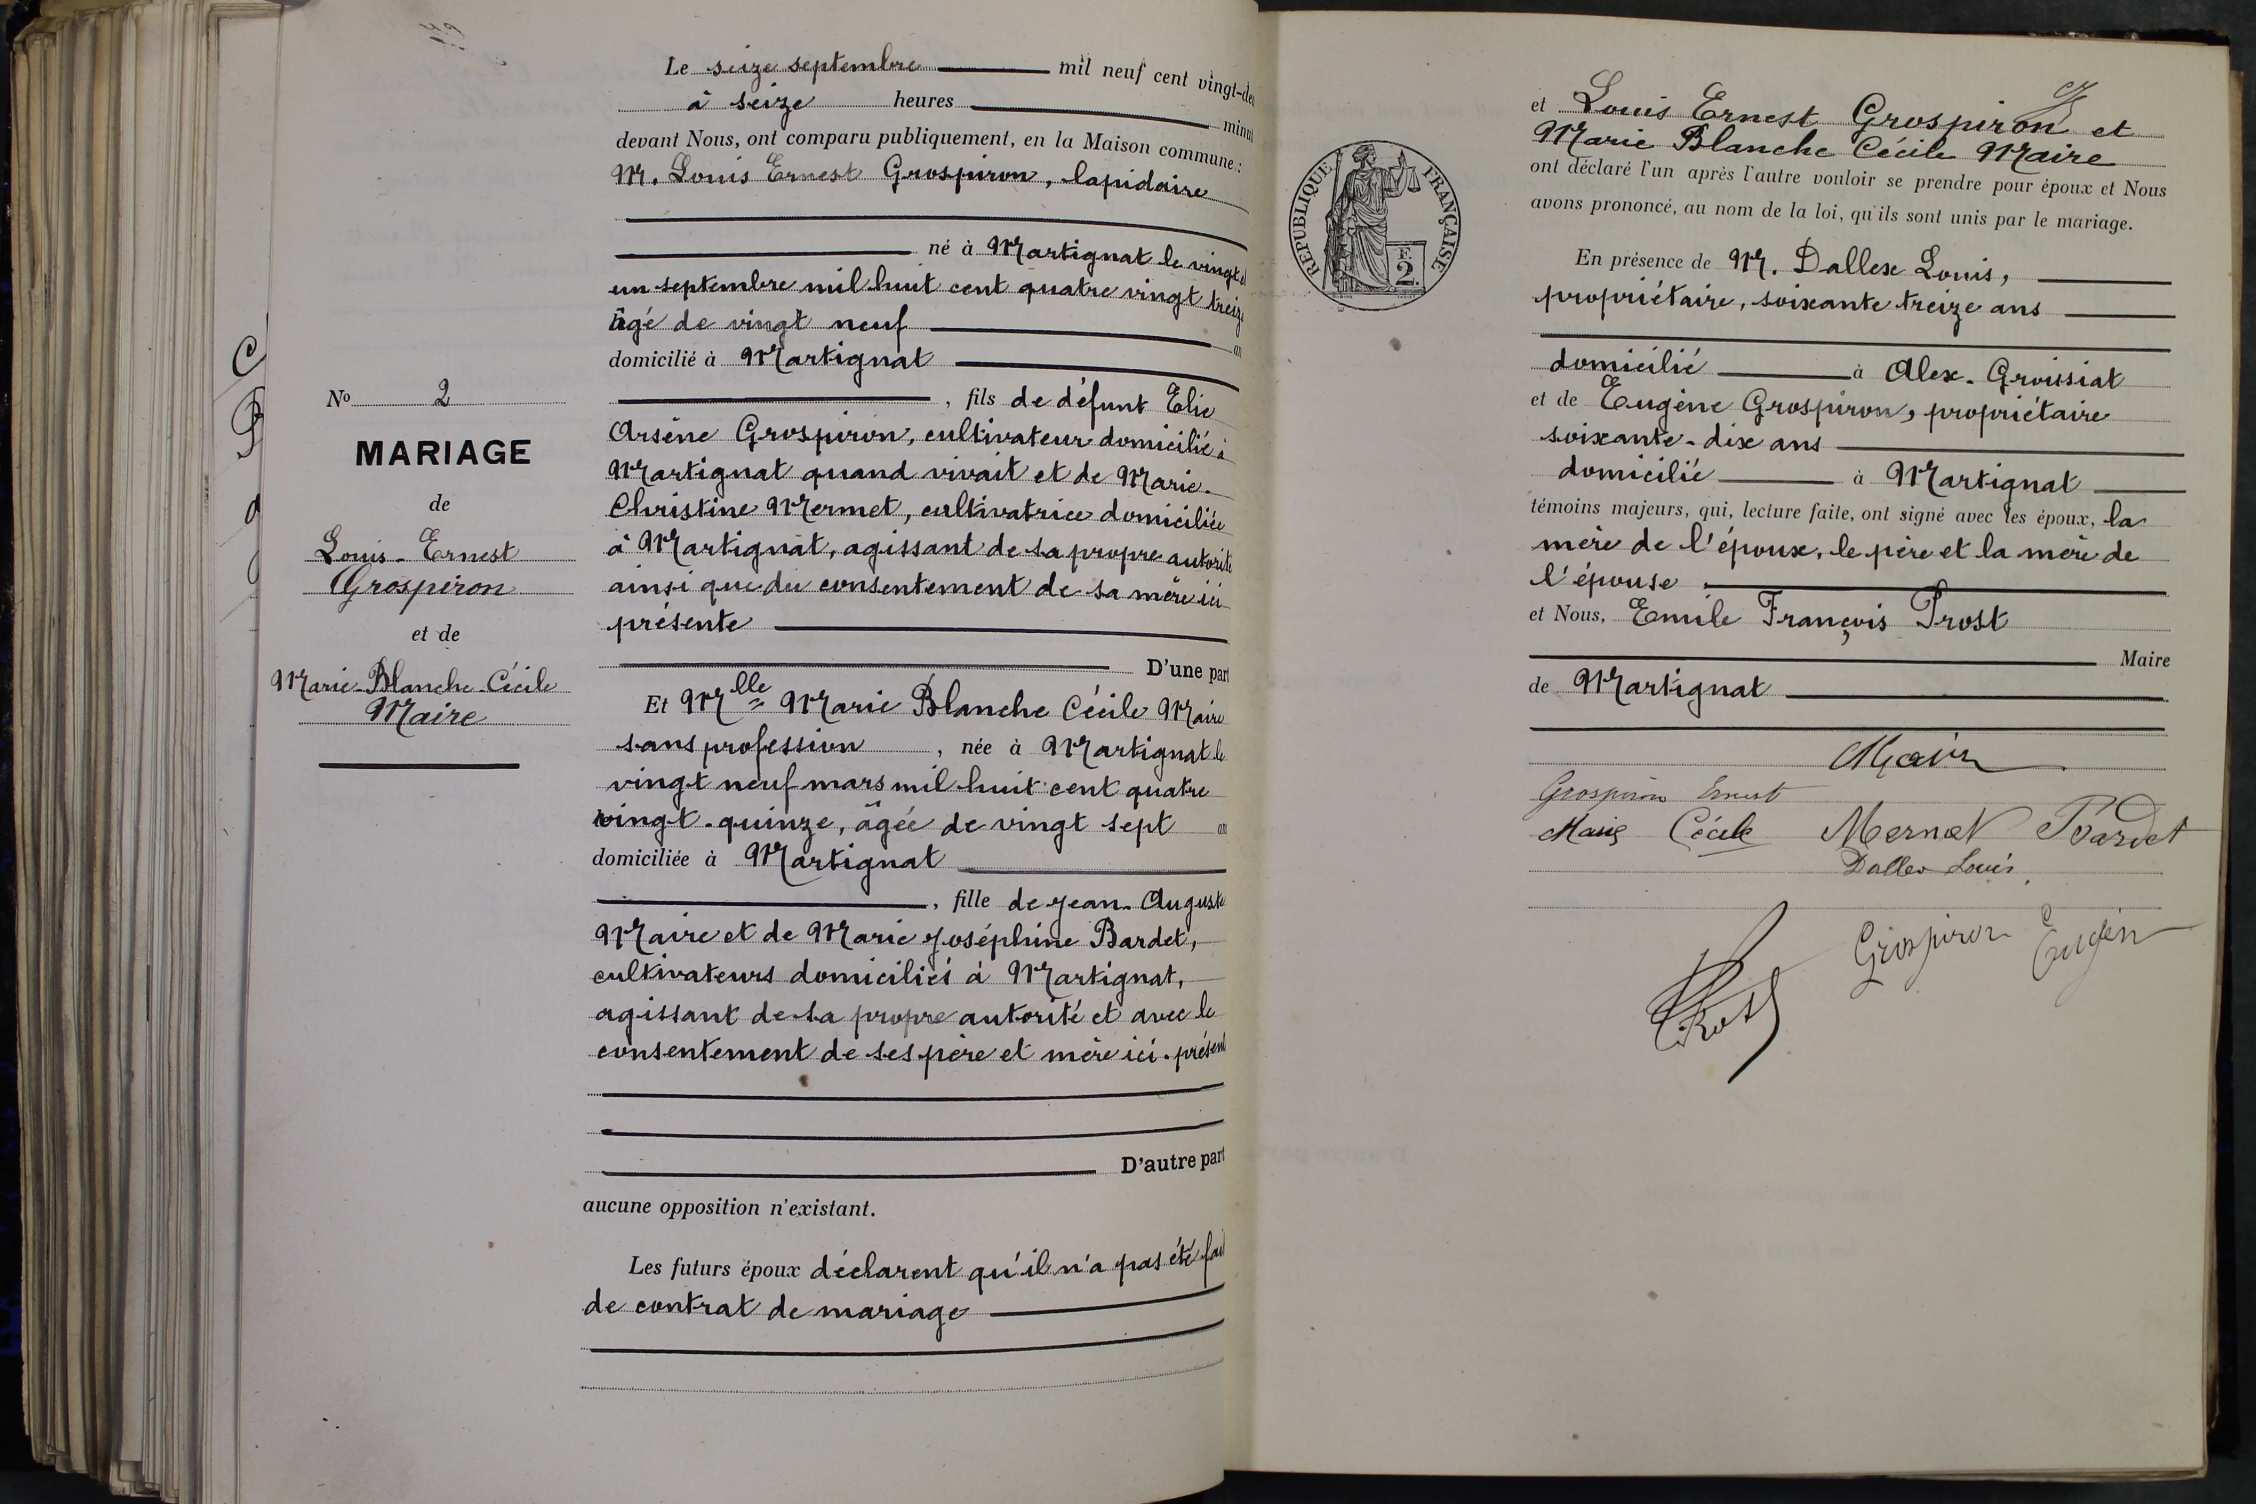 No 2
MARIAGE
de
Louis-Ernest
Grospiron
et de
Marie-Blanche Cécile
Maire
Le seize septembre mil neuf cent vingt-deu
à seize heures minut
devant Nous, ont comparu publiquement, en la Maison commune :
M. Louis Ernest Grospiron, lapidaire
né à Martignat le vingt et
un septembre mil huit cent quatre vingt treize
âgé de vingt neuf an
domicilié à Martignat
, fils de défunt Elie
Arsène Grospiron, cultivateur domicilié à
Martignat quand vivait et de Marie-
Christine Mermet, cultivatrice domiciliée
à Martignat, agissant de sa propre autorité
ainsi que du consentement de sa mère ici
présente
D'une part
Et Mlle Marie Blanche Cécile Maire
sans profession , née à Martignat le
vingt neuf mars mil huit cent quatre
vingt-quinze, âgée de vingt sept an
domiciliée à Martignat
, fille de Jean-Auguste
Maire et de Marie Joséphine Bardet,
cultivateurs domiciliés à Martignat,
agissant de sa propre autorité et avec le
consentement de ses père et mère ici-présent
D'autre part
aucune opposition n'existant.
Les futurs époux déclarent qu'il n'a pas été fait
de contrat de mariage
RÉPUBLIQUE FRANÇAISE
F.
2.
et Louis Ernest Grospiron et
Marie Blanche Cécile Maire
ont déclaré l'un après l'autre vouloir se prendre pour époux et Nous
avons prononcé, au nom de la loi, qu'ils sont unis par le mariage.
En présence de M. Dallex Louis,
propriétaire, soixante treize ans
domicilié à Alex-Groissiat
et de Eugène Grospiron, propriétaire
soixante-dix ans
domicilié à Martignat
témoins majeurs, qui, lecture faite, ont signé avec les époux, la
mère de l'époux, le père et la mère de
l'épouse
et Nous, Emile François Prost
Maire
de Martignat
Maire
Grospiron Ernest
Maire Cécile Mermet Bardet
Dallex Louis
Grospiron Eugèn
Prost